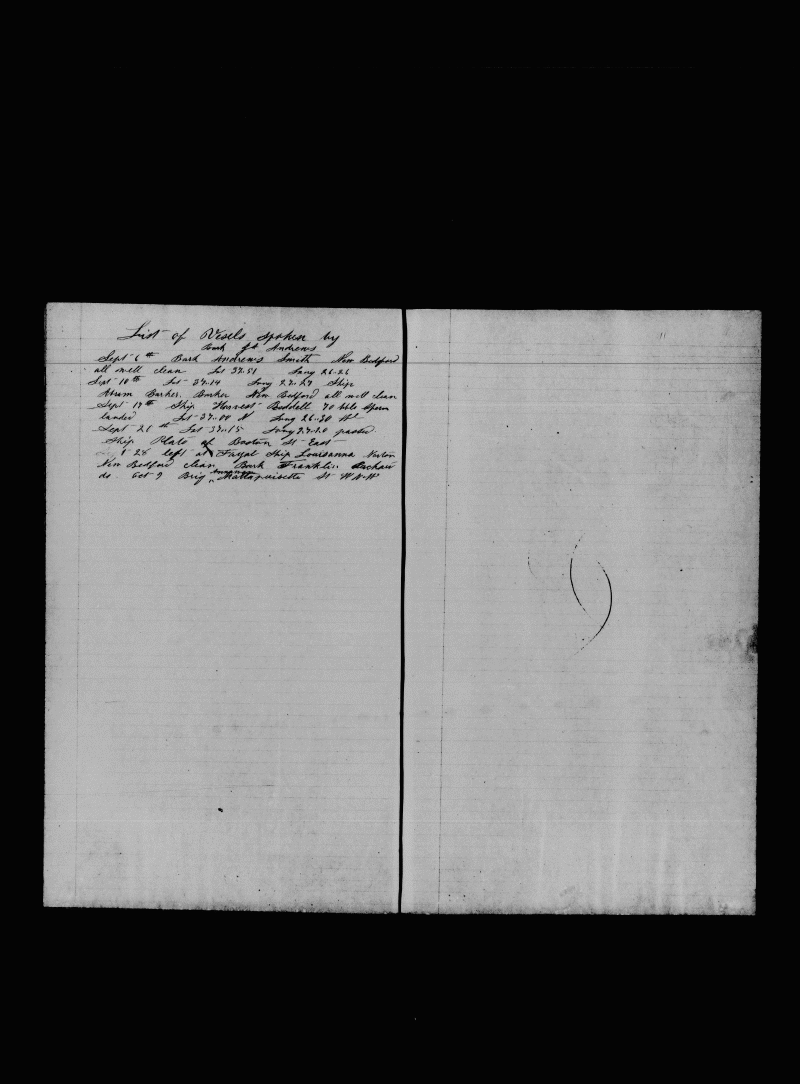 List of Vesels spoken by
Bark Js Andrews
Sept 6th Bark Andrews Smith New Bedford
all well clean Lat 37.51 Long 26.26
Sept 10th Lat 37.14 Long 27.27 Ship
Hiram Barker. Barker New Bedford all well clean
Sept 17th Ship Harvest Beddell 70 bbls sperm
landed Lat 37.00 N Long 26.30 Wt
Sept 21th Lat 37.15 Long 27.20 passed
Ship Plato of Boston St East
28 left at Fayal Ship Louisanna Norton
New Bedford clean Bark Franklin
do. Oct 9 Brig Mattapoisette St W N W